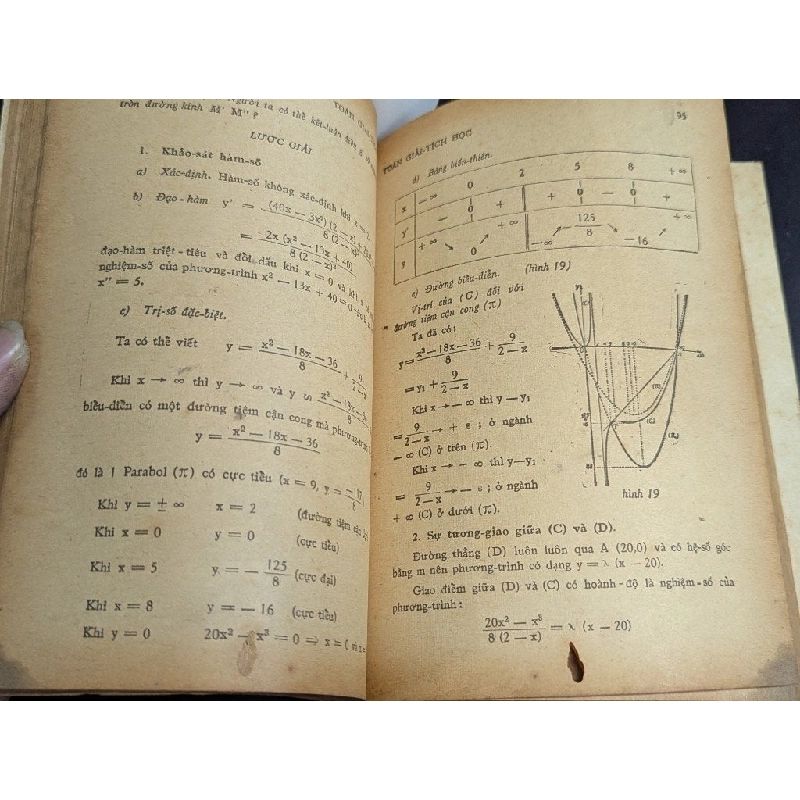 người ta có thể kết-luận
tròn đường kính M' M'' ?
LƯỢC GIẢI
1. Khảo-sát hàm-số
a) Xác-định. Hàm-số không xác-định khi x =
b) Đạo-hàm y' = (40x — 3x²) (2 — x) +
8 (2 — x)²
= 2x (x² — 13x + 40)
8 (2 — x)²
đạo-hàm triệt-tiêu và đổi dấu khi x = 0 và khi
nghiệm-số của phương-trình x² — 13x + 40 = 0
x'' = 5.
c) Trị-số đặc-biệt.
Ta có thể viết y = x² — 18x — 36 / 8 + 9 / 2 — x
Khi x → ∞ thì y → ∞ và y ∽ x² — 18x — 36 / 8
biểu-diễn có một đường tiệm cận cong mà phương
y = x² — 18x — 36 / 8
đó là 1 Parabol (π) có cực tiểu (x = 9, y =
Khi y = ± ∞ x = 2 (đường tiệm cận
Khi x = 0 y = 0 (cực tiểu)
Khi x = 5 y = — 125 / 8 (cực đại)
Khi x = 8 y = — 16 (cực tiểu)
Khi y = 0 20x² — x³ = 0 ⇒ x = 0
TOÁN GIẢI-TÍCH HỌC 95
d) Bảng biến-thiên.
x — ∞ 0 2 5 8 + ∞
y' — 0 + + 0 — 0 +
y + ∞ ↘ 0 ↗ + ∞ — ∞ ↗ 125 / 8 ↘ —16 ↗ + ∞
e) Đường biểu-diễn. (hình 19)
Vị-trí của (C) đối với
đường tiệm cận cong (π)
Ta đã có :
y = x² — 18x — 36 / 8 + 9 / 2 — x
= y₁ + 9 / 2 — x
Khi x → — ∞ thì y — y₁
= 9 / 2 — x → + ε ; ở ngành
— ∞ (C) ở trên (π).
Khi x → — ∞ thì y — y₁
= 9 / 2 — x → — ε ; ở ngành
+ ∞ (C) ở dưới (π).
hình 19
2. Sự tương-giao giữa (C) và (D).
Đường thẳng (D) luôn luôn qua A (20,0) và có hệ-số góc
bằng m nên phương-trình có dạng y = λ (x — 20).
Giao điểm giữa (D) và (C) có hoành-độ là nghiệm-số của
phương-trình :
20x² — x³ / 8 (2 — x) = λ (x — 20)